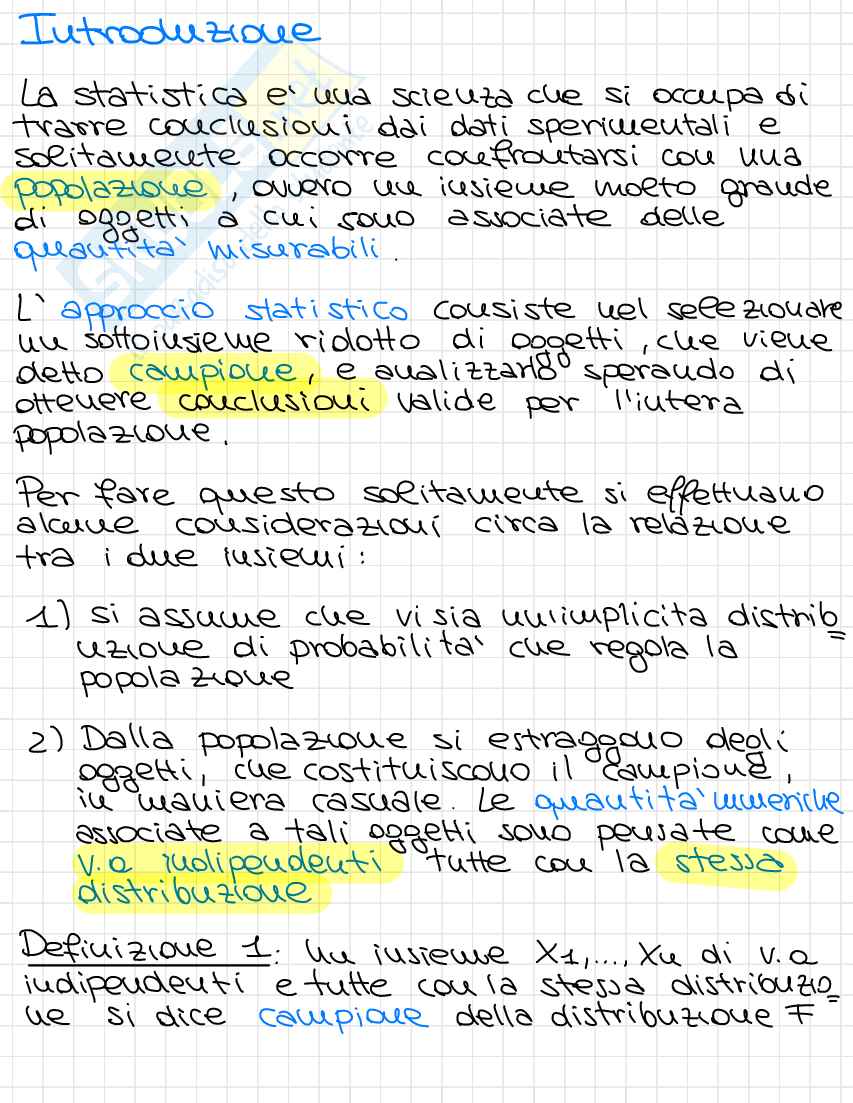 Introduzione
La statistica e' una scienza che si occupa di
trarre conclusioni dai dati sperimentali e
solitamente occorre confrontarsi con una
popolazione, ovvero un insieme molto grande
di oggetti a cui sono associate delle
quantita' misurabili.
L' approccio statistico consiste nel selezionare
un sottoinsieme ridotto di oggetti, che viene
detto campione, e analizzarlo sperando di
ottenere conclusioni valide per l'intera
popolazione.
Per fare questo solitamente si effettuano
alcune considerazioni circa la relazione
tra i due insiemi:
1) si assume che vi sia un'implicita distrib=
uzione di probabilita' che regola la
popolazione
2) Dalla popolazione si estraggono degli
oggetti, che costituiscono il campione,
in maniera casuale. Le quantita' numeriche
associate a tali oggetti sono pensate come
v.a indipendenti tutte con la stessa
distribuzione
Definizione 1: Un insieme X1,..., Xn di v.a
indipendenti e tutte con la stessa distribuzio=
ne si dice campione della distribuzione F